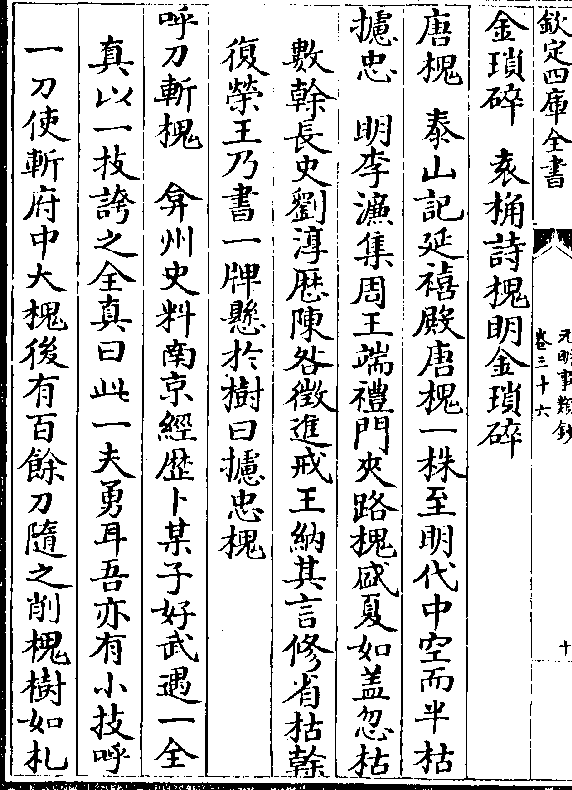 欽定四庫全書
元明事類鈔
卷三十六
十
金瑣碎　袁桷詩槐明金瑣碎
唐槐　泰山記延禧殿唐槐一株至明代中空而半枯
攄忠　明李濂集周王端禮門夾路槐盛夏如蓋忽枯
數幹長史劉淳歴陳咎徵進戒王納其言修省枯幹
復榮王乃書一牌懸於樹曰攄忠槐
呼刀斬槐　弇州史料南京經歴卜某子好武遇一全
真以一技誇之全真曰此一夫勇耳吾亦有小技呼
一刀使斬府中大槐後有百餘刀隨之削槐樹如札